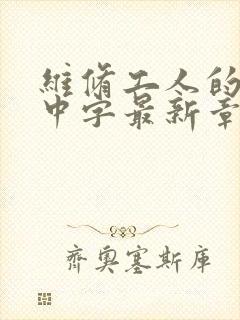 維脩工人的
中字最新章
齊奧塞斯庫